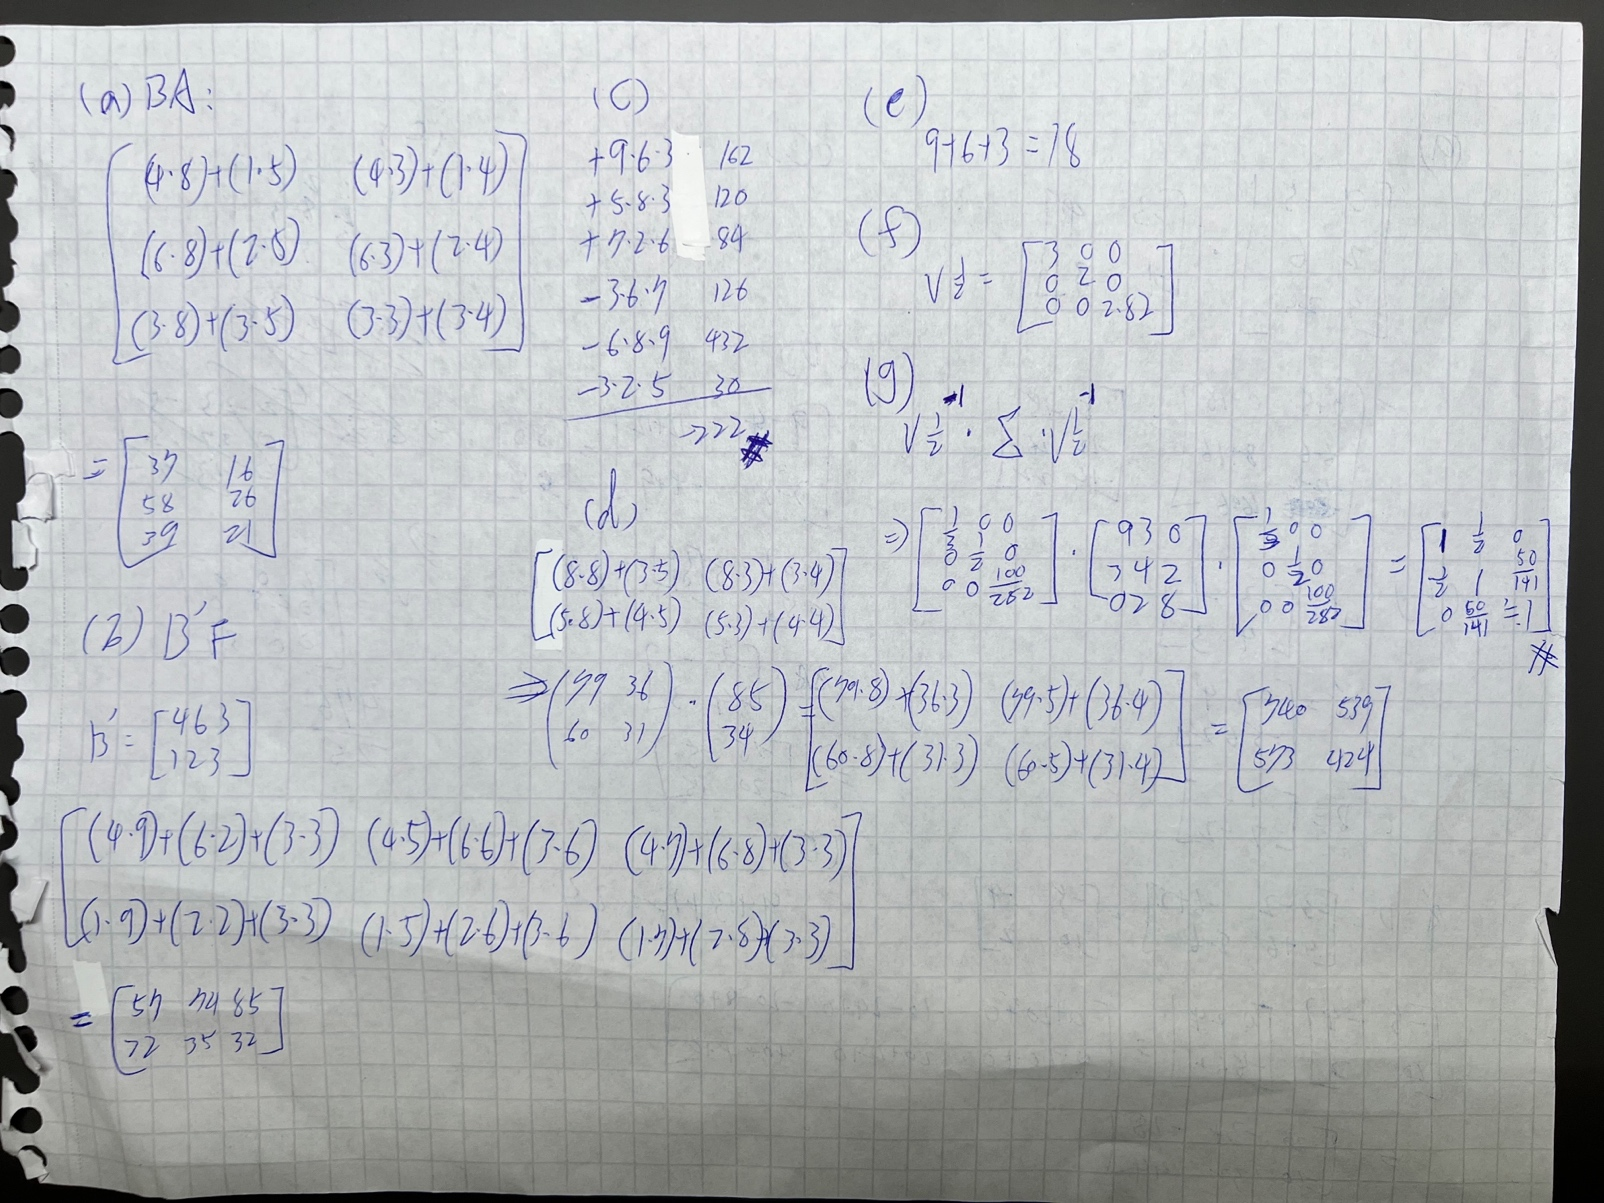 (a) BA:
[ (4·8)+(1·5) (4·3)+(1·4)
(6·8)+(2·5) (6·3)+(2·4)
(3·8)+(3·5) (3·3)+(3·4) ]
= [ 37 16
58 26
39 21 ]
(b) B'F
B' = [ 4 6 3
1 2 3 ]
[ (4·9)+(6·2)+(3·3) (4·5)+(6·6)+(3·6) (4·7)+(6·8)+(3·3)
(1·9)+(2·2)+(3·3) (1·5)+(2·6)+(3·6) (1·7)+(2·8)+(3·3) ]
= [ 57 74 85
22 35 32 ]
(C)
+9·6·3 162
+5·8·3 120
+7·2·6 84
-3·6·7 126
-6·8·9 432
-3·2·5 30
-222 #
(d)
[ (8·8)+(3·5) (8·3)+(3·4)
(5·8)+(4·5) (5·3)+(4·4) ]
⇒ ( 79 36
60 31 ) · ( 8 5
3 4 ) = [ (79·8)+(36·3) (79·5)+(36·4)
(60·8)+(31·3) (60·5)+(31·4) ] = [ 740 539
573 424 ]
(e)
9+6+3=18
(f)
V½ = [ 3 0 0
0 2 0
0 0 2.82 ]
(g)
V½⁻¹ · Σ · V½⁻¹
⇒ [ 1/3 0 0
0 1/2 0
0 0 100/282 ] · [ 9 3 0
3 4 2
0 2 8 ] · [ 1/3 0 0
0 1/2 0
0 0 100/282 ] = [ 1 1/2 0
1/2 1 50/141
0 50/141 ≒1 ]
#